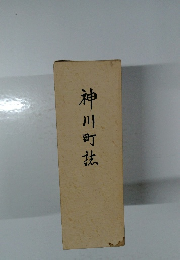 神川町誌